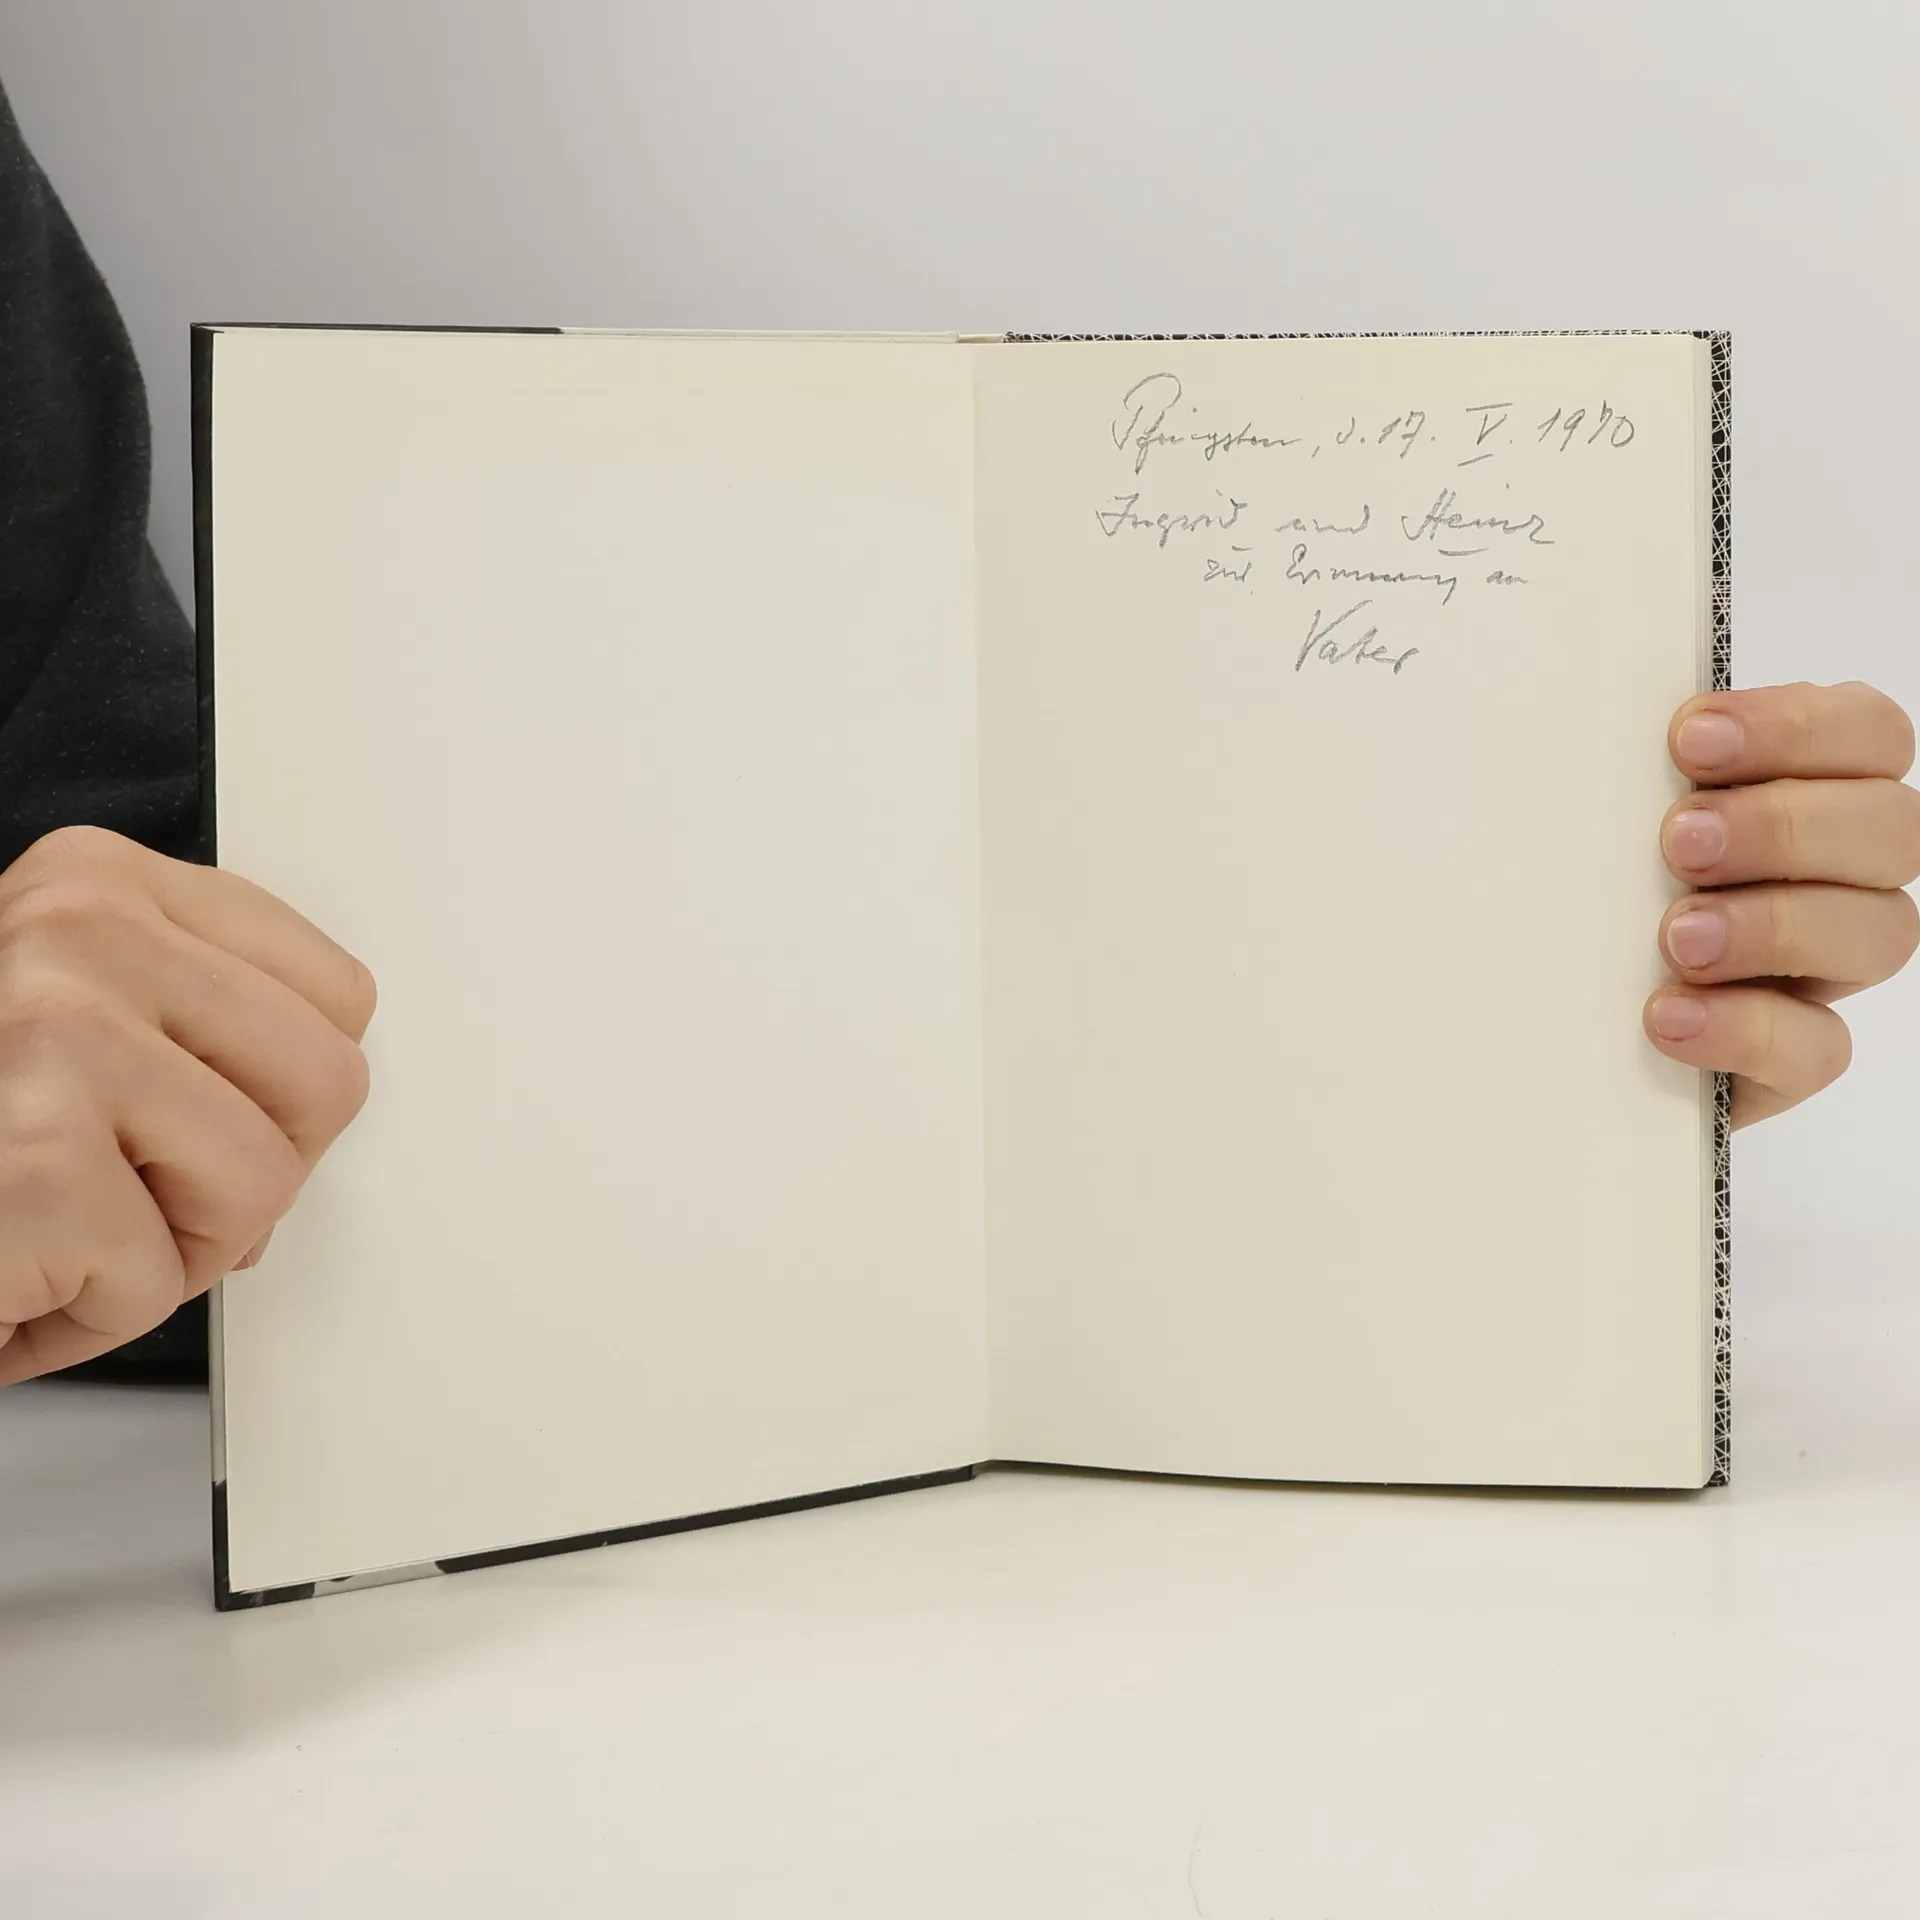 Pfingsten, d. 17. V. 1970
Ingrid und Heinz
zur Erinnerung an
Vater